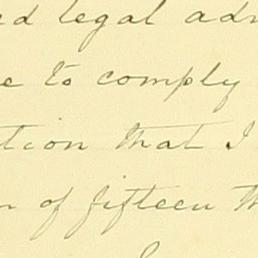 ed legal adv
e to comply
tion that I
n of fifteen th